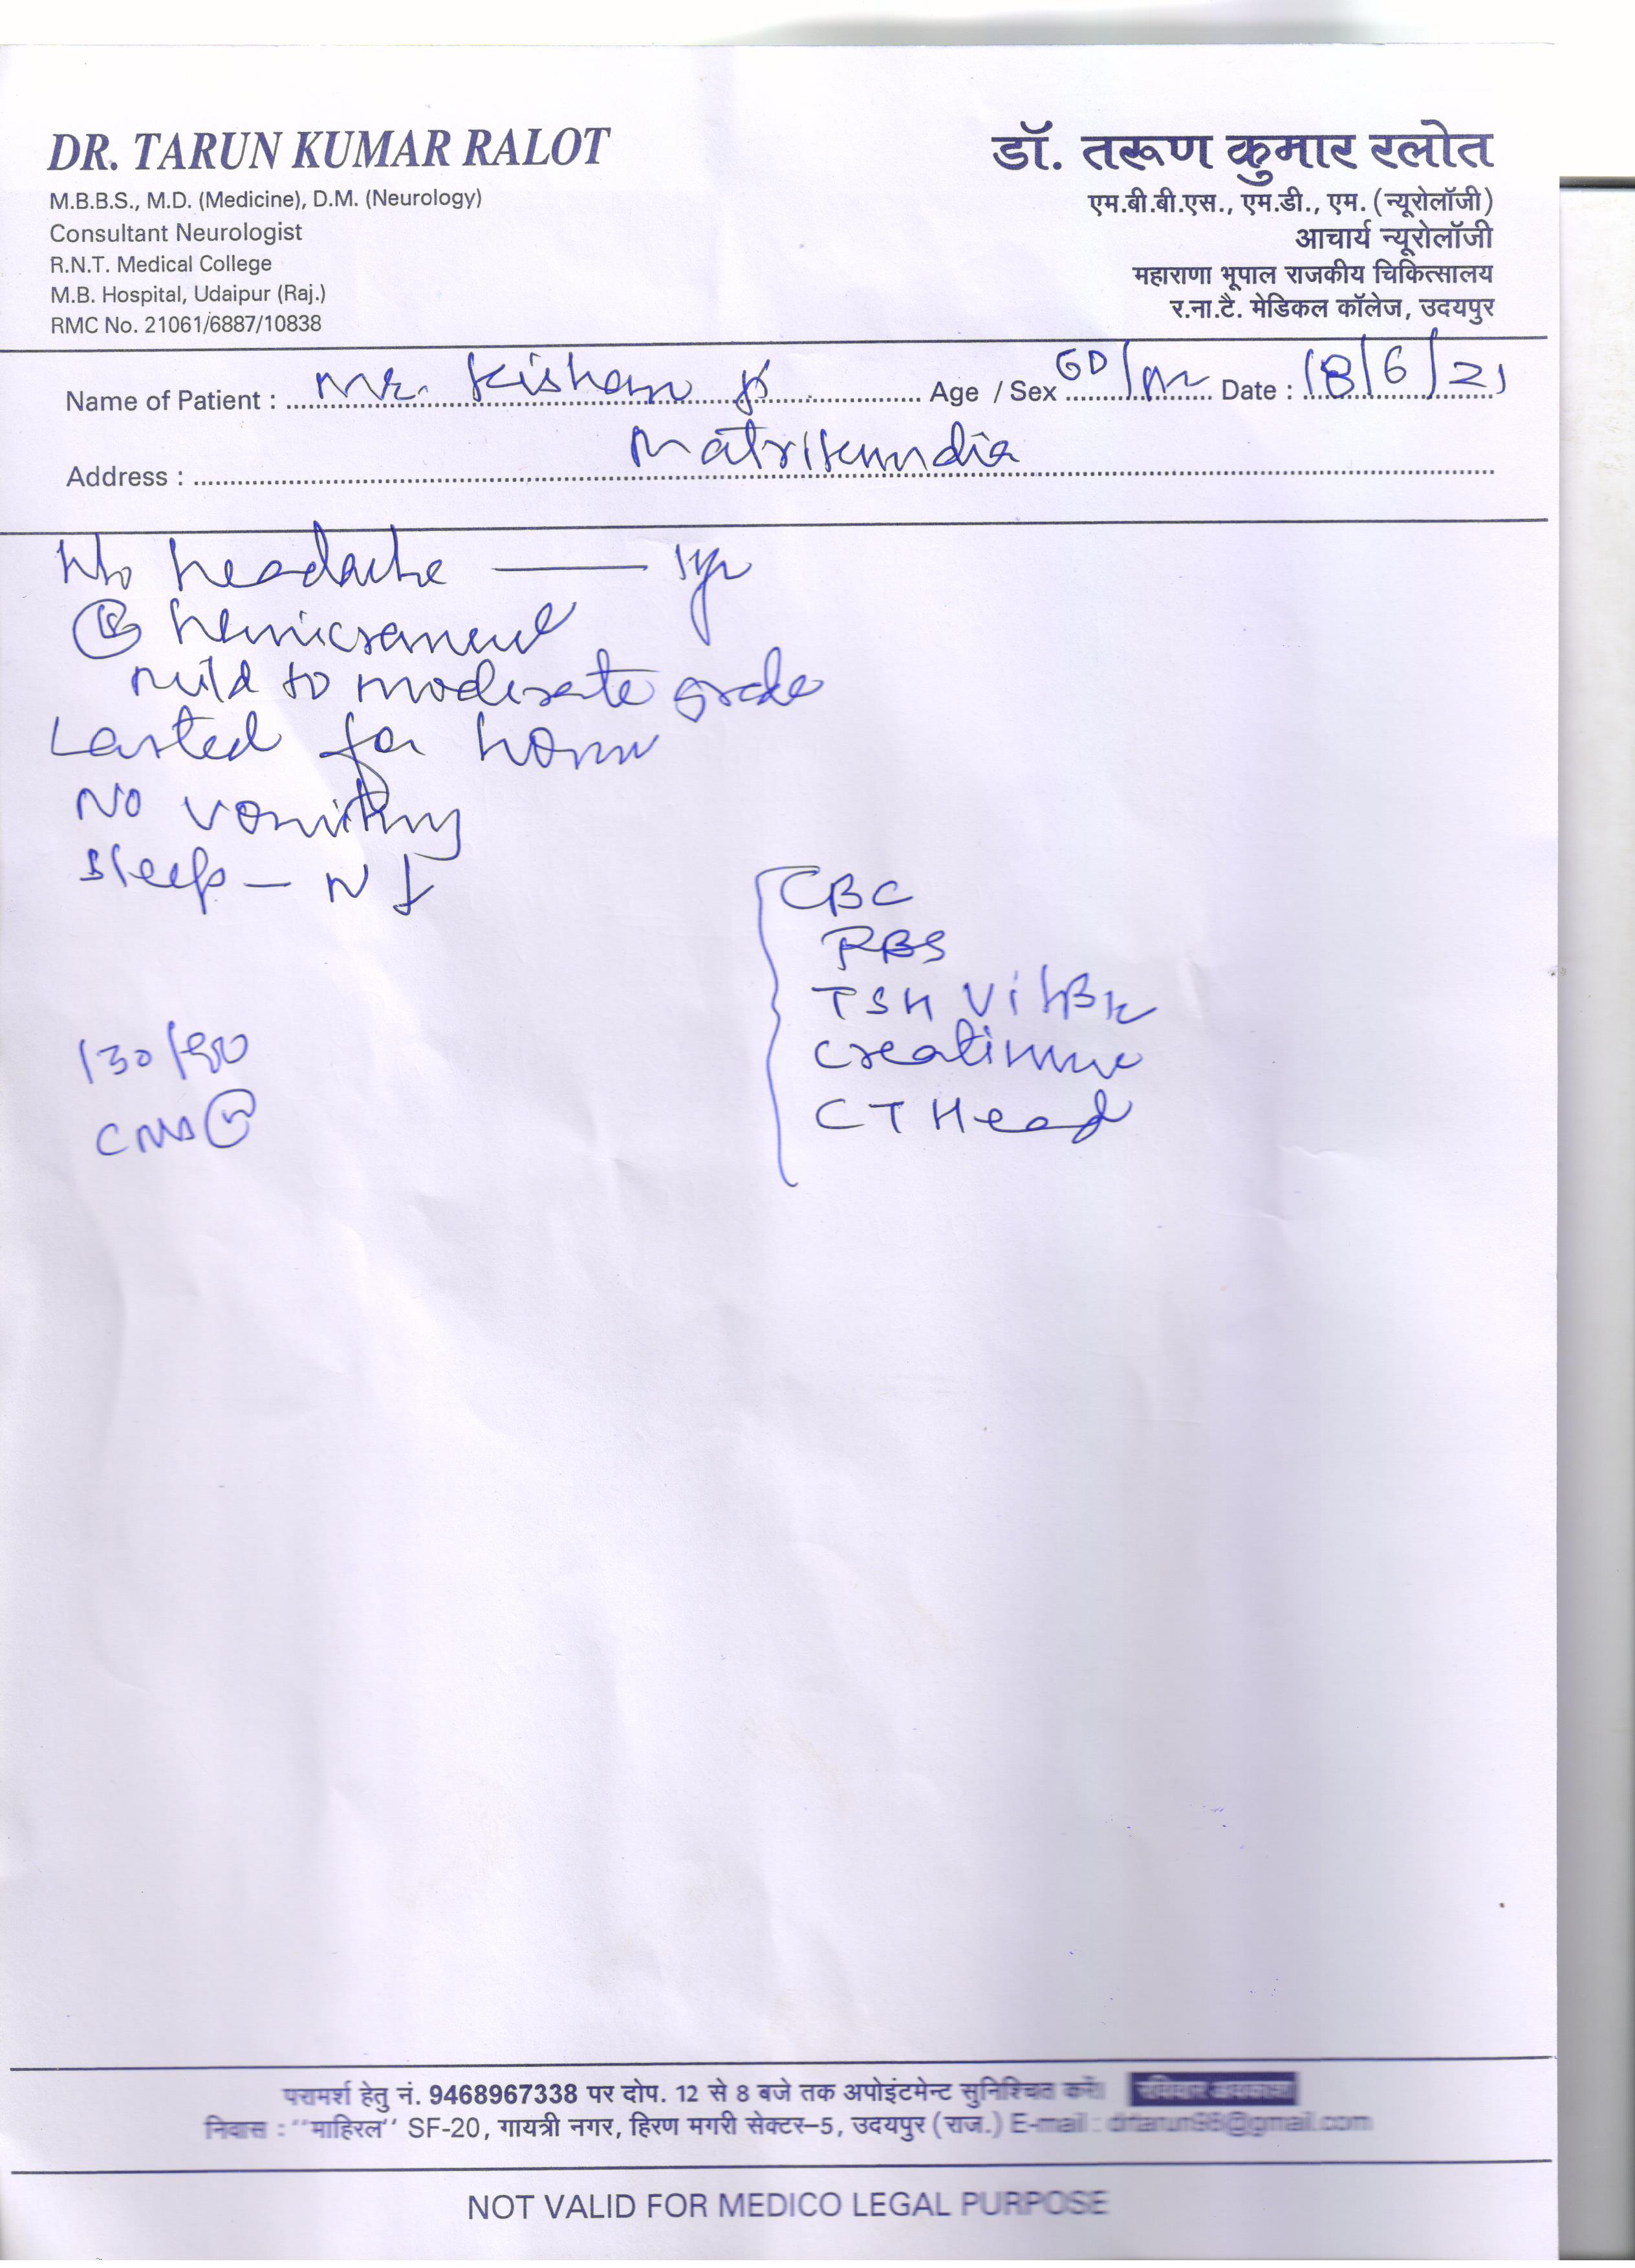 DR. TARUN KUMAR RALOT
M.B.B.S., M.D. (Medicine), D.M. (Neurology)
Consultant Neurologist
R.N.T. Medical College
M.B. Hospital, Udaipur (Raj.)
RMC No. 21061/6887/10838
डॉ. तरूण कुमार रलोत
एम.बी.बी.एस., एम.डी., एम. (न्यूरोलॉजी)
आचार्य न्यूरोलॉजी
महाराणा भूपाल राजकीय चिकित्सालय
र.ना.टै. मेडिकल कॉलेज, उदयपुर
Name of Patient : Mr. Kishan Age / Sex 60/M Date : 18/6/21
Address : Matrikundia
H/o headache — 1yr
mild to moderate grade
Lasted for hour
No vomiting
Sleep – N
CBC
RBS
TSH Vit B12
Creatinine
CT Head
130/80
CNS
परामर्श हेतु नं. 9468967338 पर दोप. 12 से 8 बजे तक अपोइंटमेन्ट सुनिश्चित करें।
निवास : "माहिरल" SF-20, गायत्री नगर, हिरण मगरी सेक्टर-5, उदयपुर (राज.) E-mail :
NOT VALID FOR MEDICO LEGAL PURPOSE